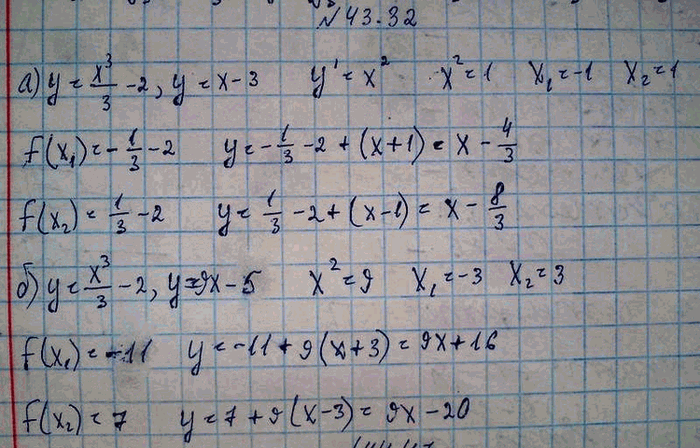 №43.32
а) y = x³/3 - 2, y = x - 3 y' = x² x² = 1 x₁ = -1 x₂ = 1
f(x₁) = -1/3 - 2 y = -1/3 - 2 + (x+1) = x - 4/3
f(x₂) = 1/3 - 2 y = 1/3 - 2 + (x-1) = x - 8/3
б) y = x³/3 - 2, y = 9x - 5 x² = 9 x₁ = -3 x₂ = 3
f(x₁) = -11 y = -11 + 9(x+3) = 9x + 16
f(x₂) = 7 y = 7 + 9(x-3) = 9x - 20